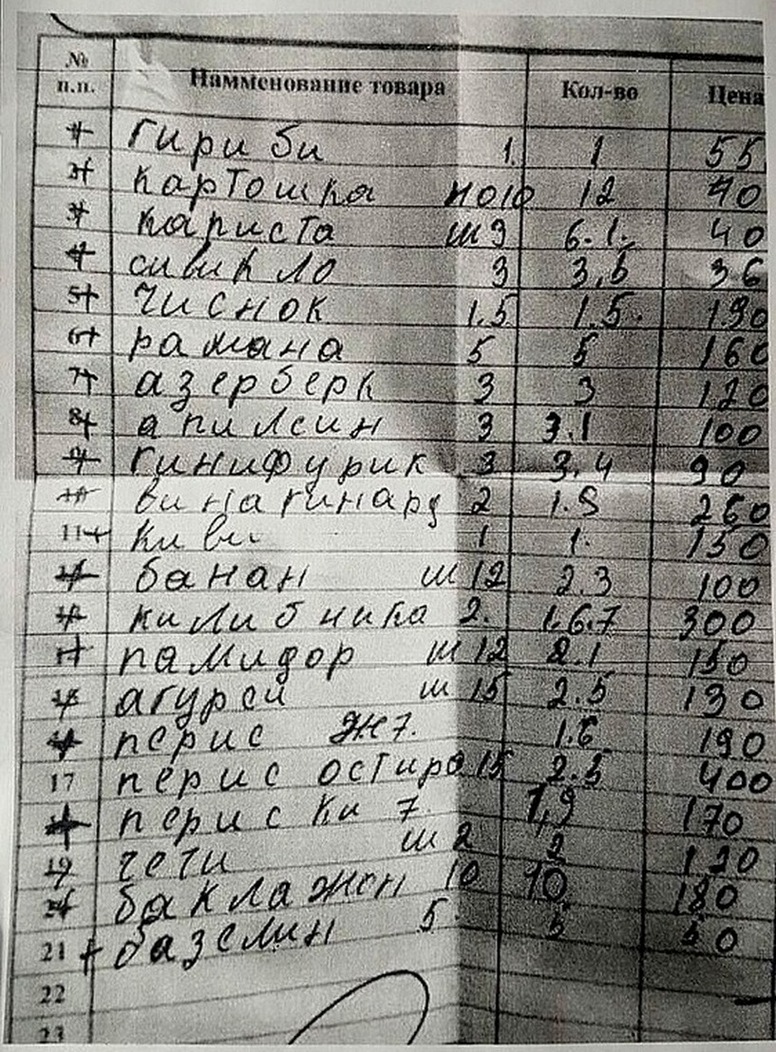 № п.п. Наименование товара Кол-во Цена
гириби 1. 1 55
картошка 12 40
каписта ш 9 6.1. 40
сивикло 3 3,5 36
5 чиснок 1.5 1.5. 190
6 рамана 5 5 160
7 азерберк 3 3 120
8 апилсин 3 3.1 100
гинифурик 3 3.4 90
винагинард 2 1.9 260
11 киви 1 1. 150
банан ш 12 2.3 100
килибника 2. 300
памидор ш 12 2.1 150
агурси ш 15 2.5 130
перис ж 7. 1.6 190
17 перис остиро 15 2.5 400
перис ки 7. 1,9 170
19 чети ш 2 2 120
баклажон 10 10 180
21 + базелин 5. 5 50
22
23